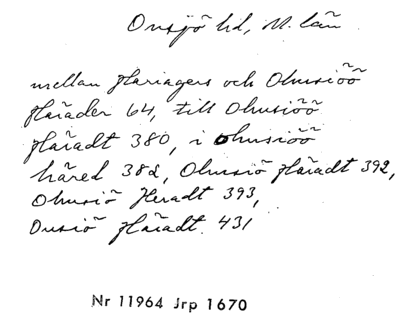 Onsjö hd, M. län
mellan Hariagers och Ohnsiöõ
Häräder 64, till Ohnsiöõ
Häradt 380, i Ohnsiöõ
häred 382, Ohnsiö Häradt 392,
Ohnsiö Heradt 393,
Onsiö Häradt. 431
Nr 11964 Jrp 1670